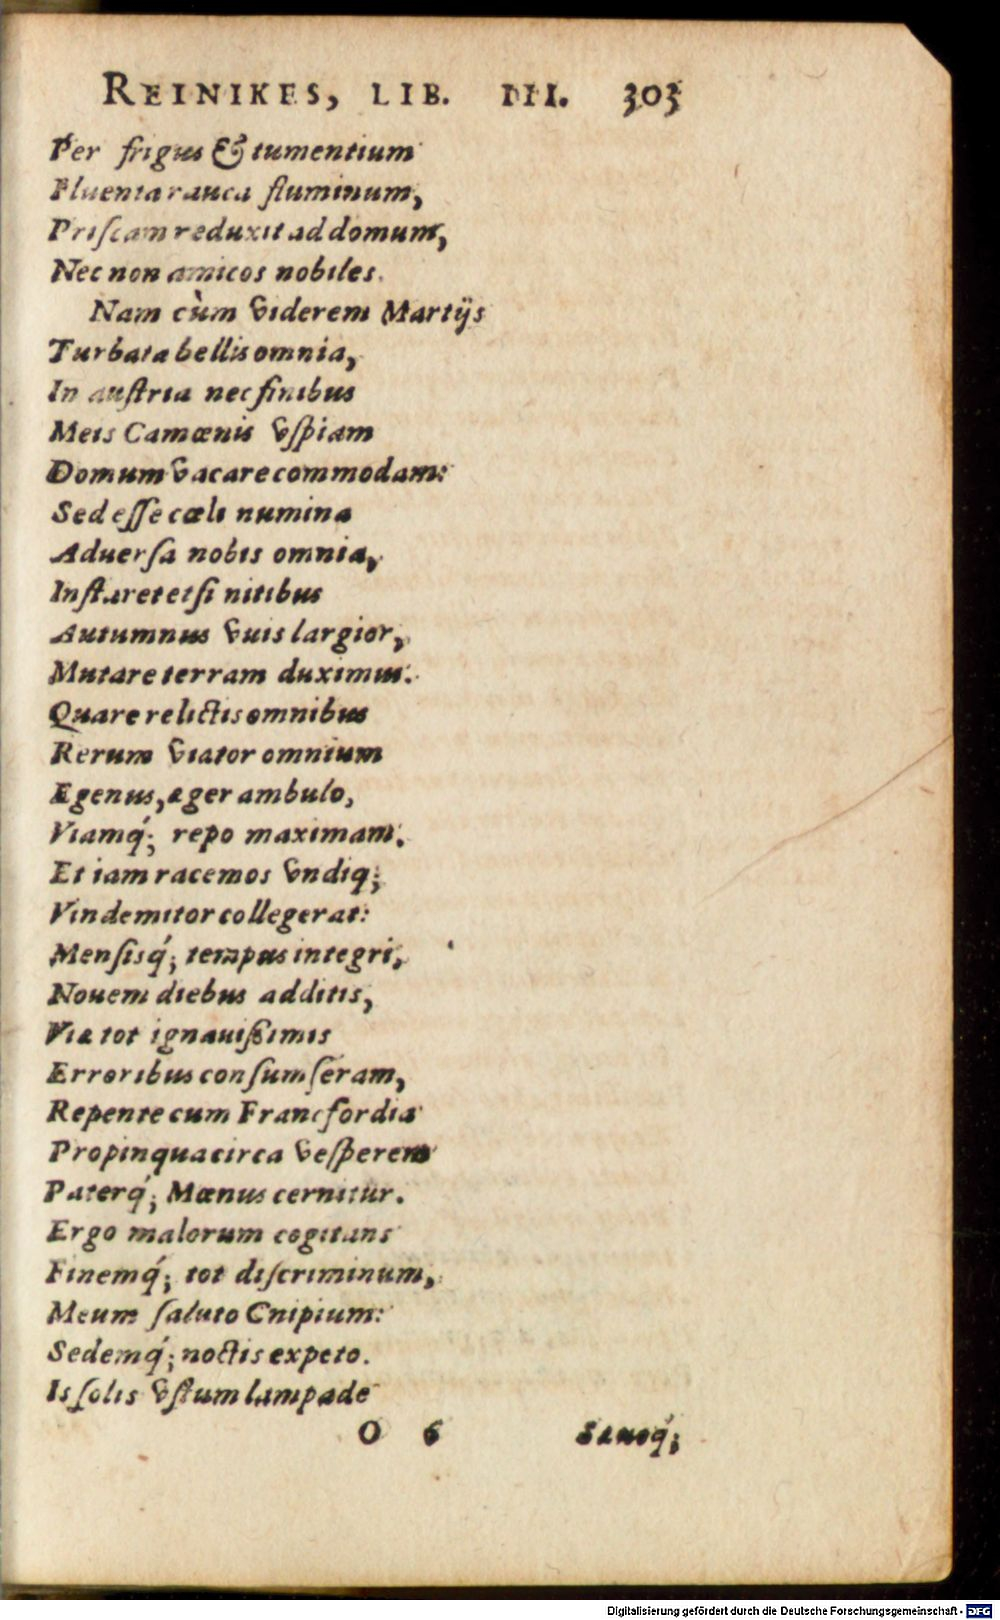 REINIKES, LIB. III. 303
Per frigus & tumentium
Fluenta rauca fluminum,
Priſcam reduxit ad domum,
Nec non amicos nobiles.
Nam cùm viderem Martijs
Turbata bellis omnia,
In auſtria nec finibus
Meis Camœnis vſpiam
Domum vacare commodam:
Sed eſſe cœli numina
Aduerſa nobis omnia,
Inſtaret etſi nitibus
Autumnus vuis largior,
Mutare terram duximus.
Quare relictis omnibus
Rerum viator omnium
Egenus, æger ambulo,
Viamq́; repo maximam.
Et iam racemos vndiq;
Vindemitor collegerat:
Menſisq́; tempus integri,
Nouem diebus additis,
Viæ tot ignauiſsimis
Erroribus conſumſeram,
Repente cum Francfordia
Propinqua circa veſperem
Paterq́; Mœnus cernitur.
Ergo malorum cogitans
Finemq́; tot diſcriminum,
Meum ſaluto Cnipium:
Sedemq́; noctis expeto.
Is ſolis vſtum lampade
O 6 Sæuoq́;
Digitalisierung gefördert durch die Deutsche Forschungsgemeinschaft - DFG